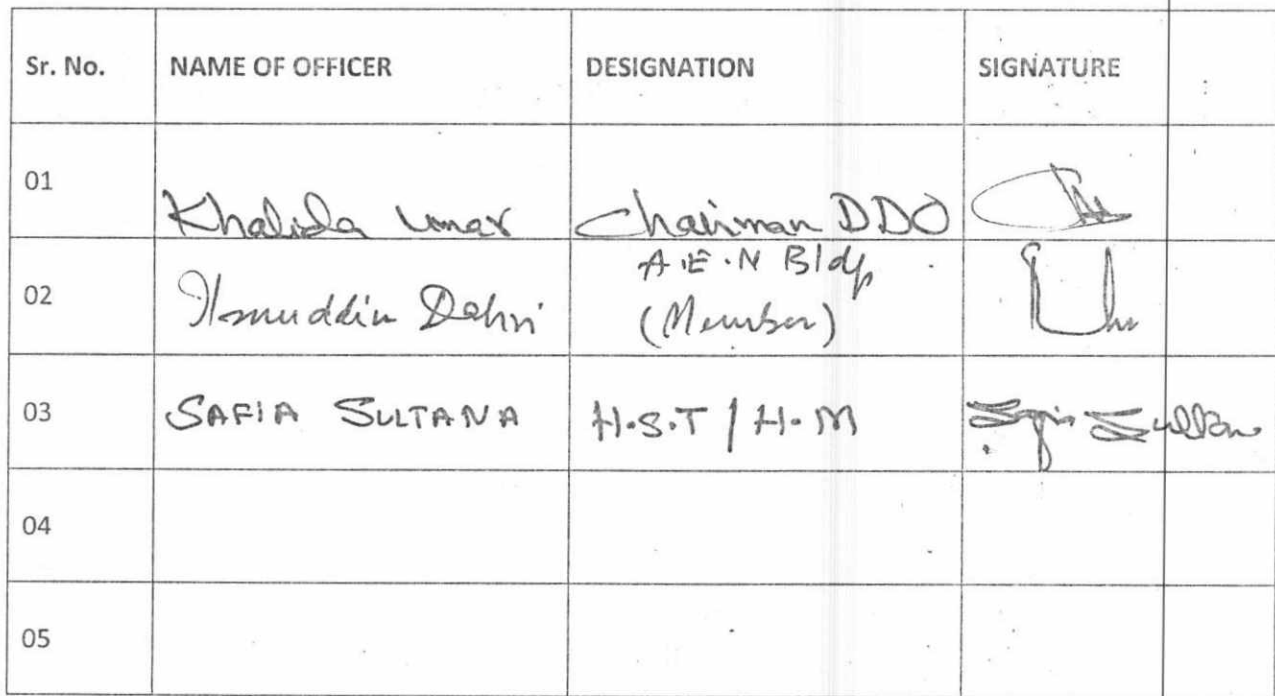 Sr. No. NAME OF OFFICER DESIGNATION SIGNATURE
01 Khalida Umar Chairman DDO
A.E.N Bldg
02 Dahri (Member)
03 SAFIA SULTANA H.S.T / H.M Safia Sultana
04
05